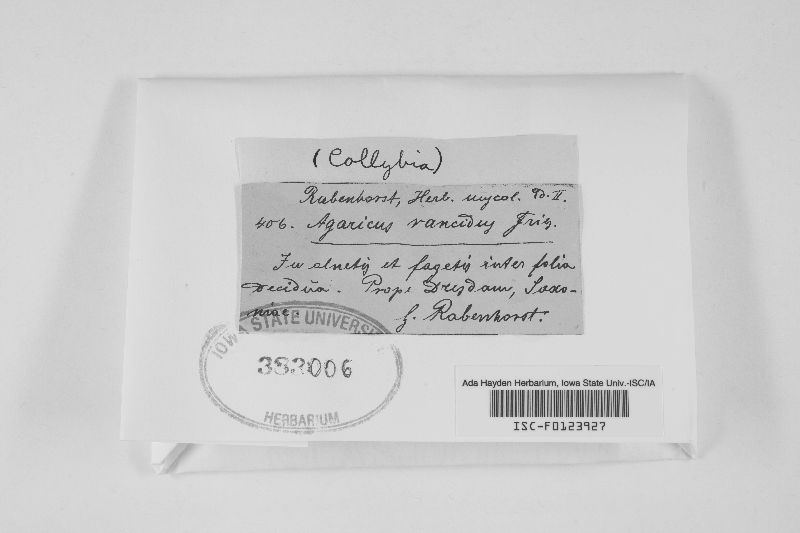 (Collybia)
Rabenhorst, Herb. mycol. Ed. II.
406. Agaricus rancidus Fries.
In alnetis et fagetis inter folia
decidua. Prope Dresdam, Saxo-
niae. L. Rabenhorst.
IOWA STATE UNIVERSITY
383006
HERBARIUM
Ada Hayden Herbarium, Iowa State Univ.-ISC/IA
ISC-F0123927